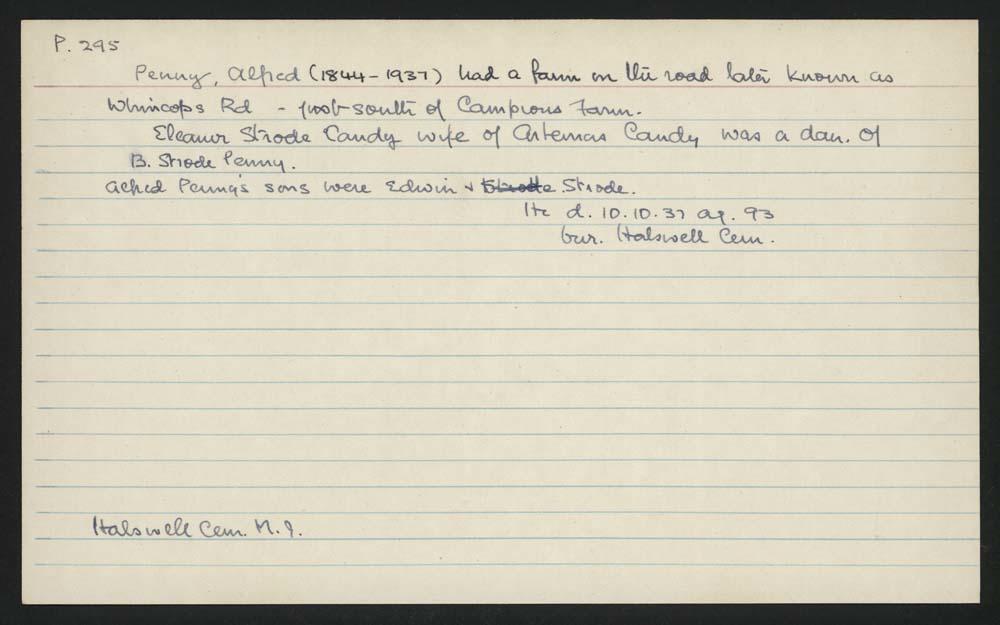 P. 295
Penny, Alfred (1844-1937) had a farm on the road later known as
Whincops Rd - just south of Campions Farm.
Eleanor Strode Candy wife of Artemas Candy was a dau. of
B. Strode Penny.
Alfred Penny's sons were Edwin & Strode.
He d. 10.10.37 ag. 93
bur. Halswell Cem.
Halswell Cem. M.I.